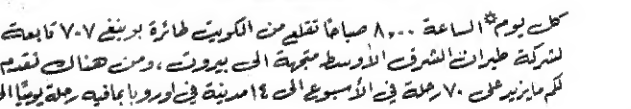 كل يوم* الساعة ٨,٠٠ صباحًا تقلع من الكويت طائرة بوينغ ٧٠٧ تابعة
لشركة طيران الشرق الأوسط متجهة الى بيروت، ومن هناك تقدم
لكم مايزيد على ٧٠ رحلة في الأسبوع الى ١٤ مدينة في اوروبا بمافيه رحلة يوميًا الى